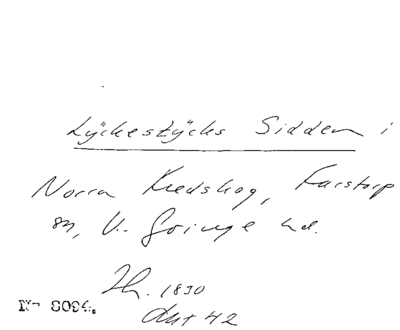 Lyckestycks Sidden i
Norra Kredshog, Farstorp
sn, V. Göinge hd.
Th. 1830
dat 42
No 8094.